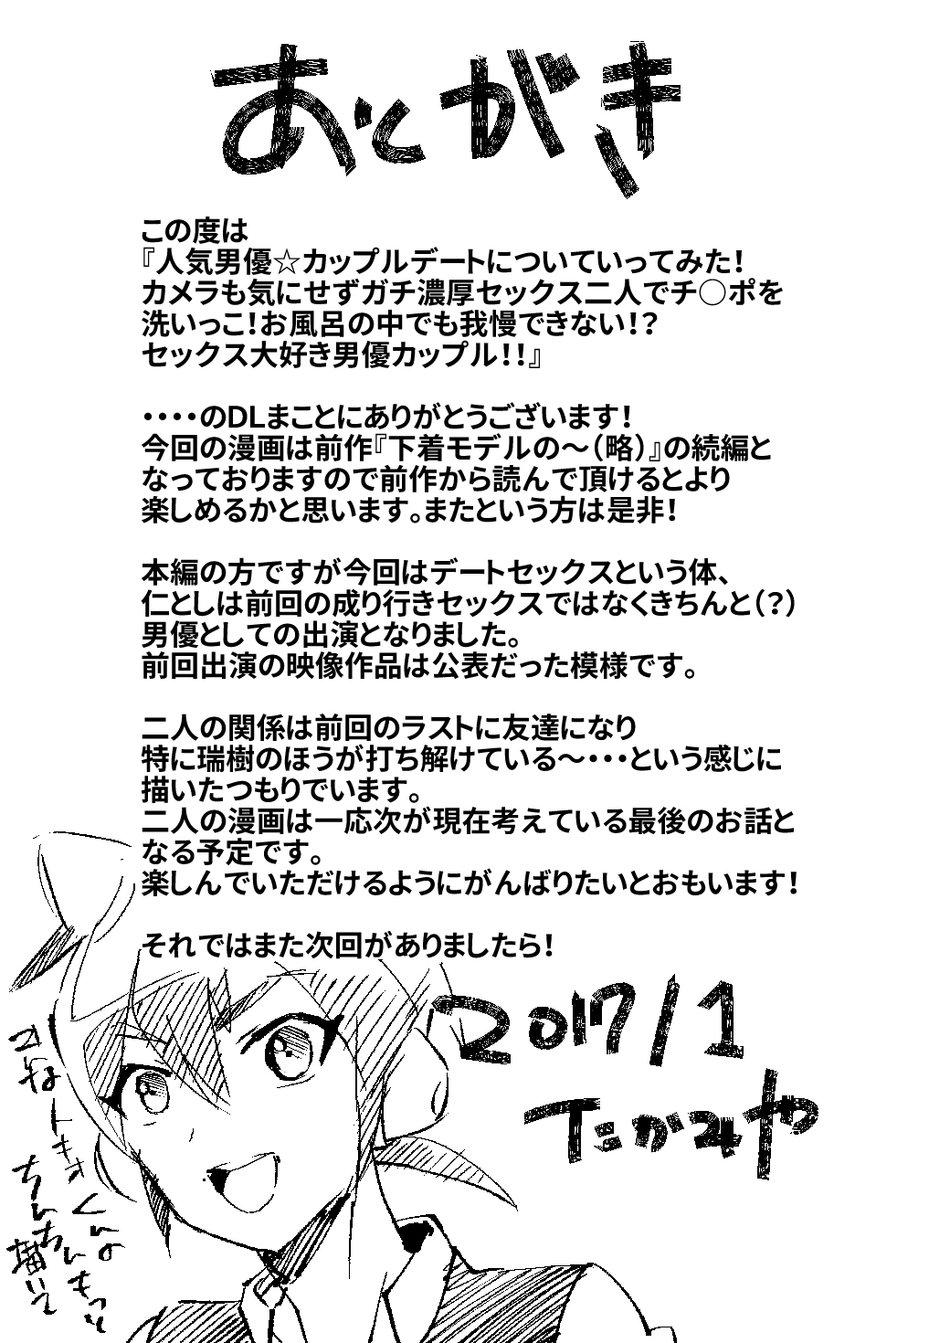 あとがき
この度は
『人気男優☆カップルデートについていってみた！
カメラも気にせずガチ濃厚セックス二人でチ○ポを
洗いっこ！お風呂の中でも我慢できない！？
セックス大好き男優カップル！！』
・・・・のDLまことにありがとうございます！
今回の漫画は前作『下着モデルの～（略）』の続編と
なっておりますので前作から読んで頂けるとより
楽しめるかと思います。またという方は是非！
本編の方ですが今回はデートセックスという体、
仁としは前回の成り行きセックスではなくきちんと（？）
男優としての出演となりました。
前回出演の映像作品は公表だった模様です。
二人の関係は前回のラストに友達になり
特に瑞樹のほうが打ち解けている～・・・という感じに
描いたつもりでいます。
二人の漫画は一応次が現在考えている最後のお話と
なる予定です。
楽しんでいただけるようにがんばりたいとおもいます！
それではまた次回がありましたら！
2017/1
たかみや
ちんちん描いて